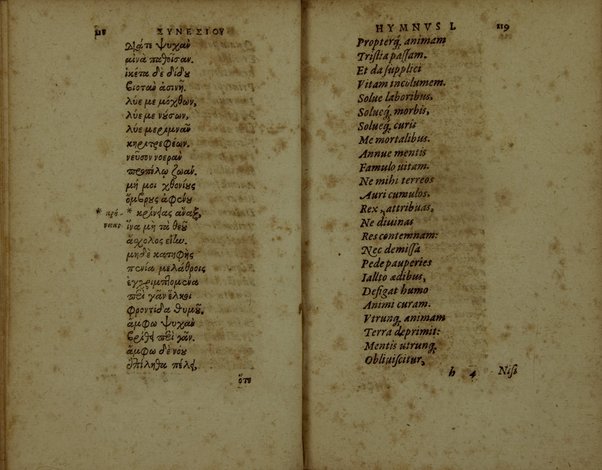 118 ΣΥΝΕΣΙΟΥ
Διά τε ψυχὰν
μίνα παθοῖσαν.
ἱκέτα δὲ δίδου
βιοτὰν ἀσινῆ.
λύε με μόχθων,
λύε με νούσων,
λύε μεριμνᾶν
κηριτρεφέων.
νεῦσον νοερὰν
προπόλῳ ζωάν.
μή μοι χθονίους
ὄμβρους ἀφένου
* κρήνζας ἄναξ,
ἵνα μὴ τὰ θεοῦ
ἄσχολος εἴην.
μηδὲ κατηφὴς
πενία μελάθροις
ἐγχριμπτομένα
περὶ γᾶν ἕλκοι
φροντίδα θυμοῦ.
ἄμφω ψυχὰν
βρίθει περὶ γᾶν.
ἄμφω δὲ νοῦ
ἐπίληθα πέλει,
ὅτε
HYMNVS I. 119
Propterq́, animam
Tristia passam.
Et da supplici
Vitam incolumem.
Solue laboribus.
Solueq́, morbis,
Solueq́, curis
Me mortalibus.
Annue mentis
Famulo uitam.
Ne mihi terreos
Auri cumulos.
Rex, attribuas,
Ne diuinas
Res contemnam:
Nec demissa
Pede pauperies
Iallto ædibus,
Defigat humo
Animi curam.
Vtrunq, animam
Terra deprimit:
Mentis utrunq,
Obliuiscitur,
h 4 Nisi